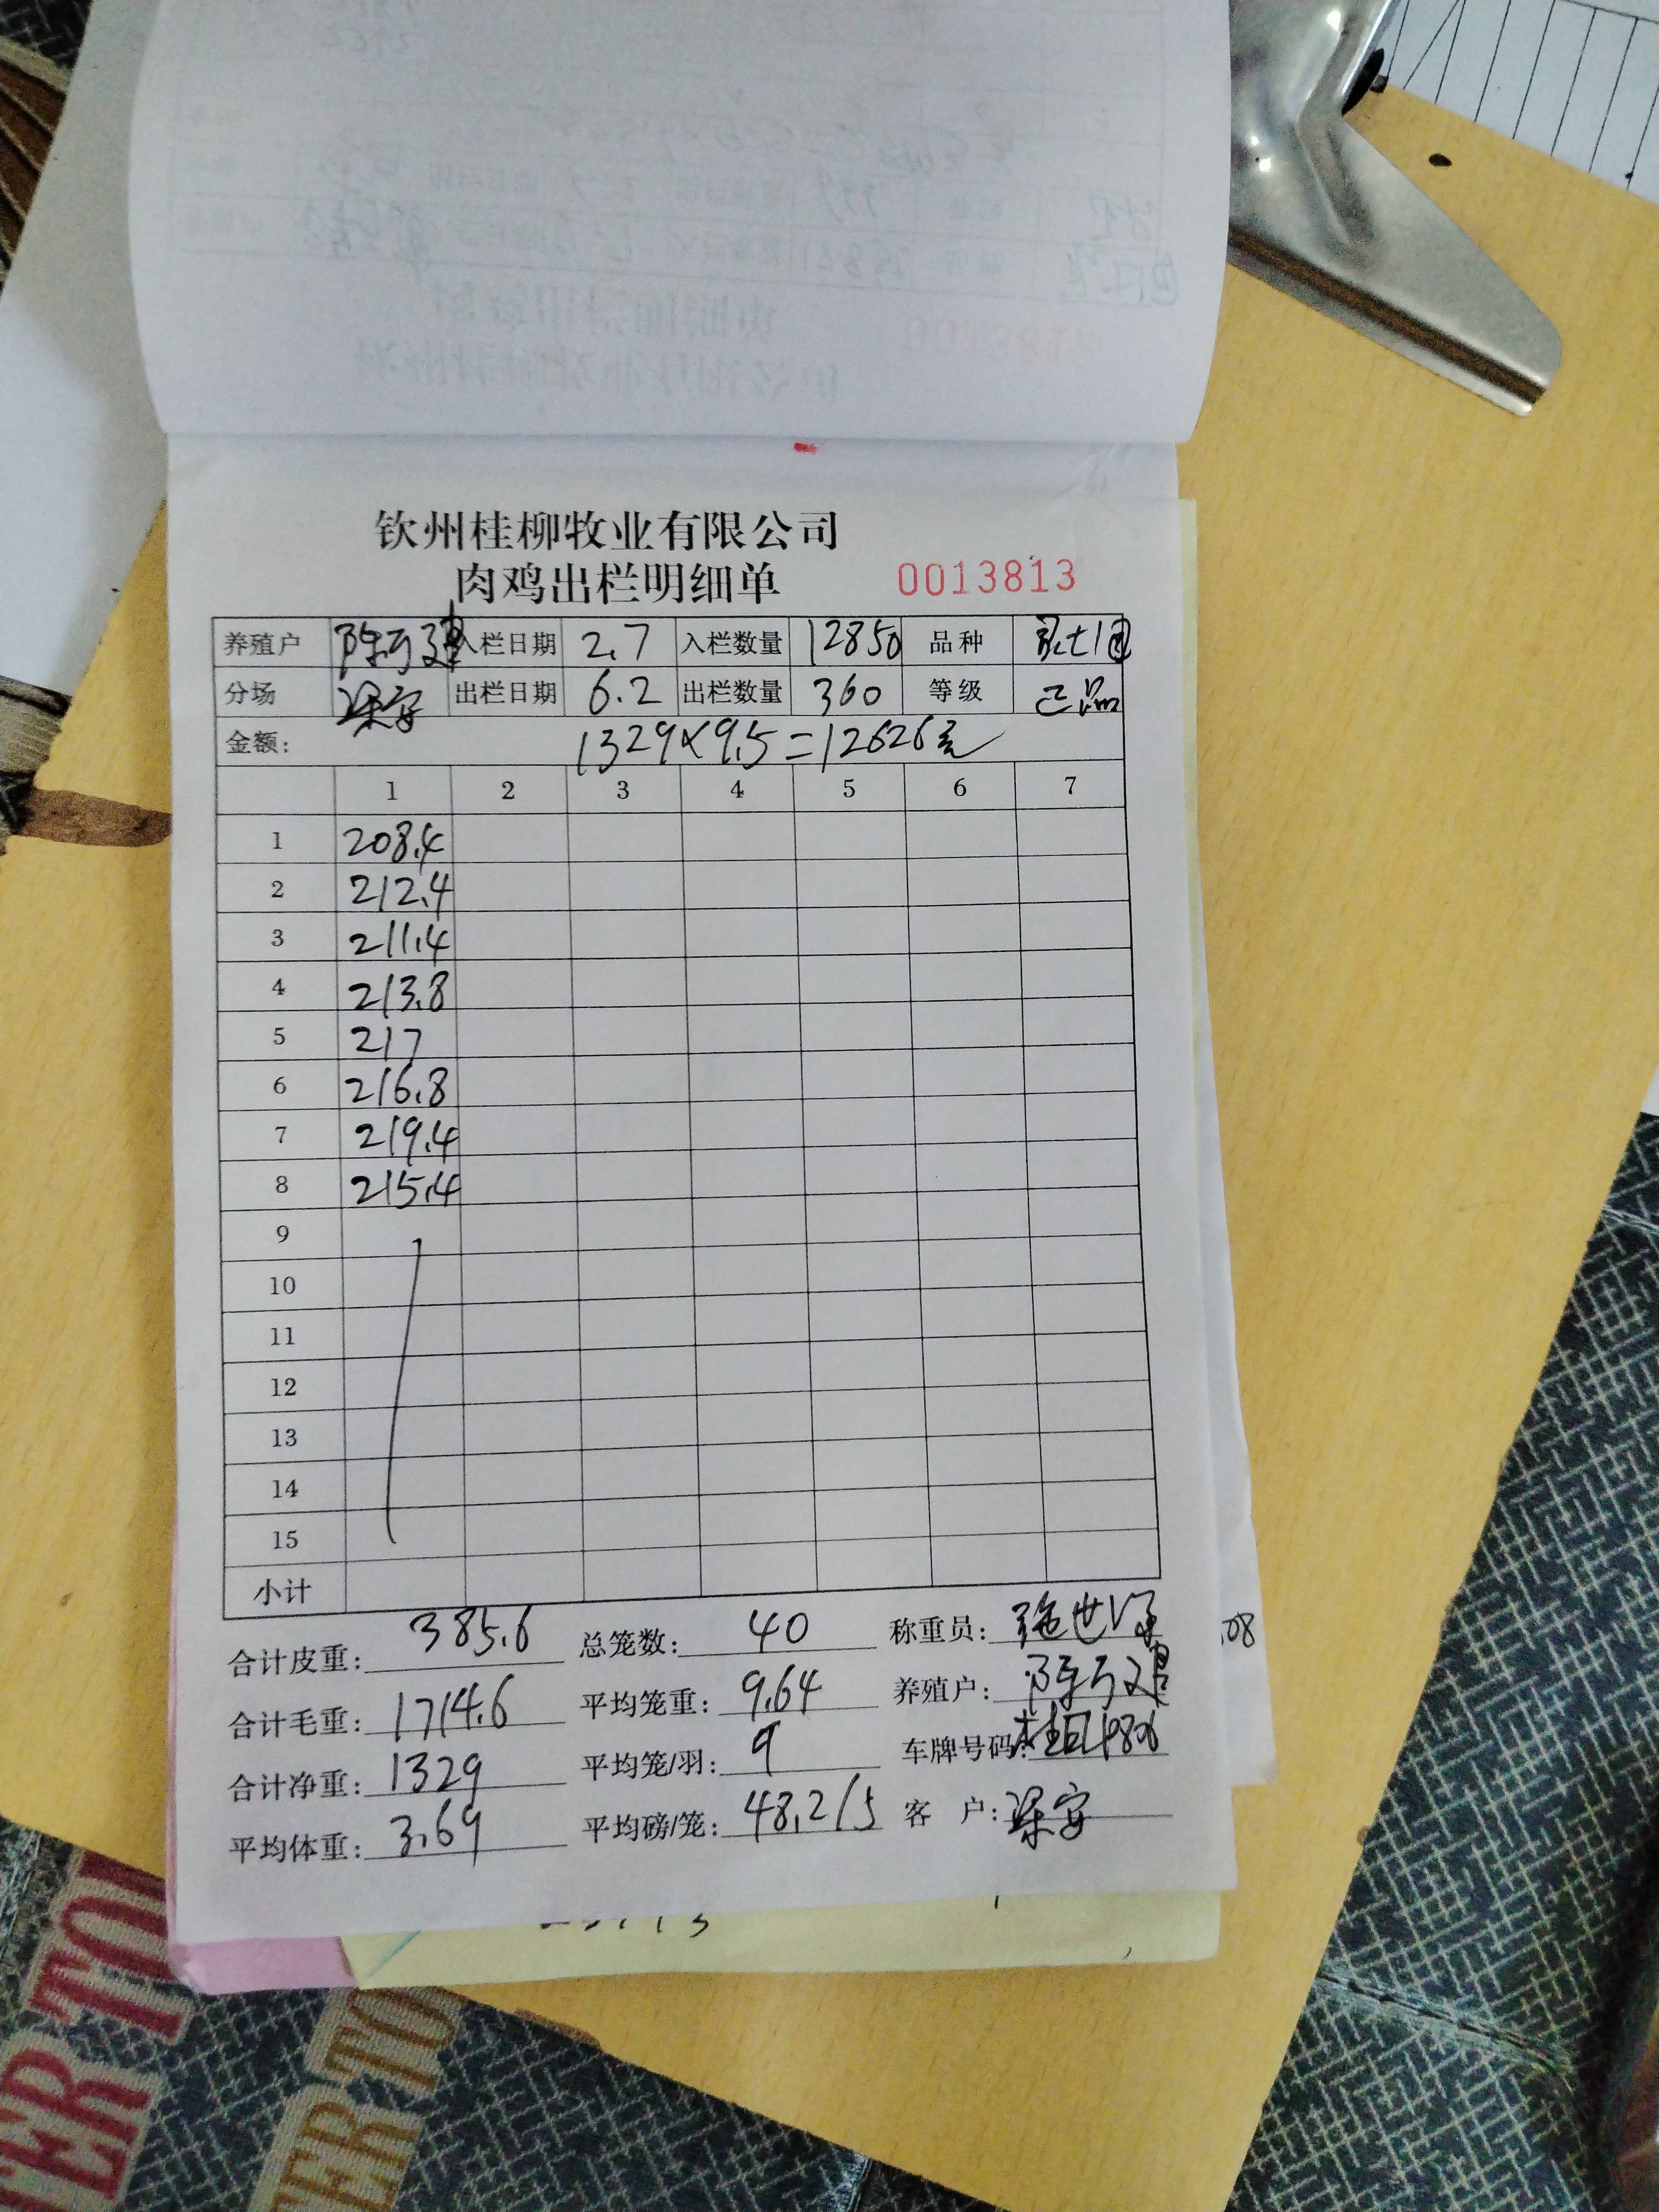 钦州桂柳牧业有限公司
肉鸡出栏明细单 0013813
养殖户 入栏日期 2.7 入栏数量 12850 品种
分场 梁安 出栏日期 6.2 出栏数量 360 等级 正品
金额: 1329×9.5=12626元
1 2 3 4 5 6 7
1 208.4
2 212.4
3 211.4
4 213.8
5 217
6 216.8
7 219.4
8 215.4
9
10
11
12
13
14
15
小计
合计皮重: 385.6 总笼数: 40 称重员:
合计毛重: 1714.6 平均笼重: 9.64 养殖户:
合计净重: 1329 平均笼/羽: 9 车牌号码:
平均体重: 3.69 平均磅/笼: 48.2/5 客 户: 梁安